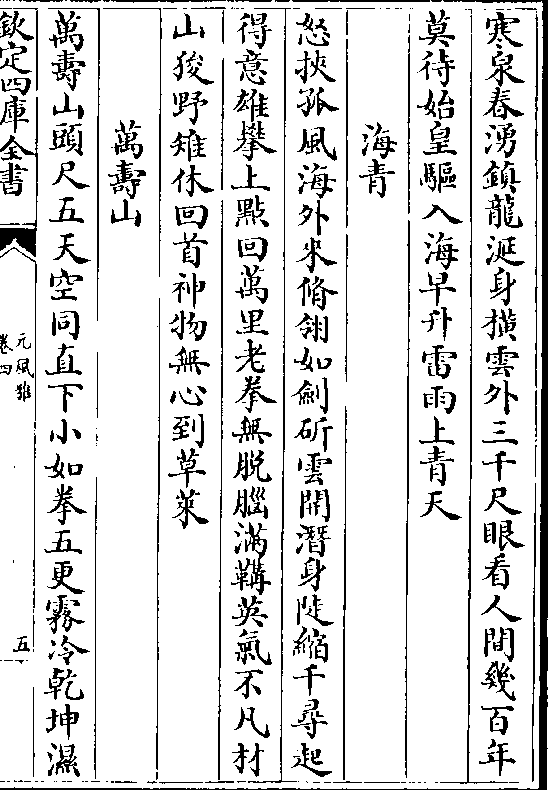 寒泉春湧鎮龍涎身橫雲外三千尺眼看人間幾百年
莫待始皇驅入海早升雷雨上青天
海青
怒挾孤風海外來脩翎如劍斫雲開潛身陡縮千尋起
得意雄攀上點回萬里老拳無脱腦滿鞲英氣不凡材
山㕙野雉休回首神物無心到草萊
萬壽山
萬壽山頭尺五天空同直下小如拳五更霧冷乾坤濕
欽定四庫全書
元風雅
卷四
五